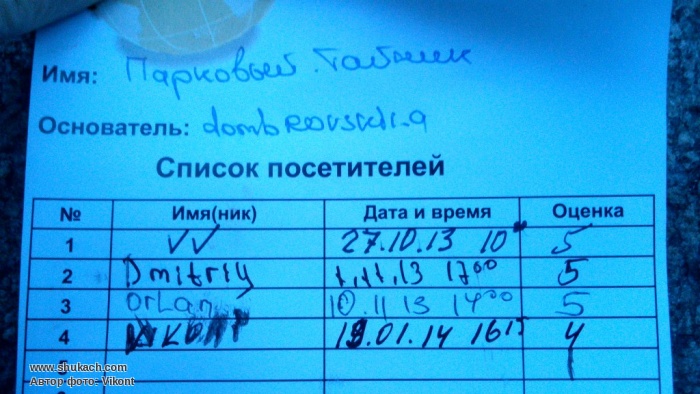 Имя: Парковый Тайник
Основатель: dombrovskii.a
Список посетителей
№ Имя(ник) Дата и время Оценка
1 VV 27.10.13 10 5
2 Dmitriy 1.11.13 17 00 5
3 Orlan 10.11.13 14 00 5
4 .01.14 16 15 4
5
www.shukach.com
Автор фото: Vikont